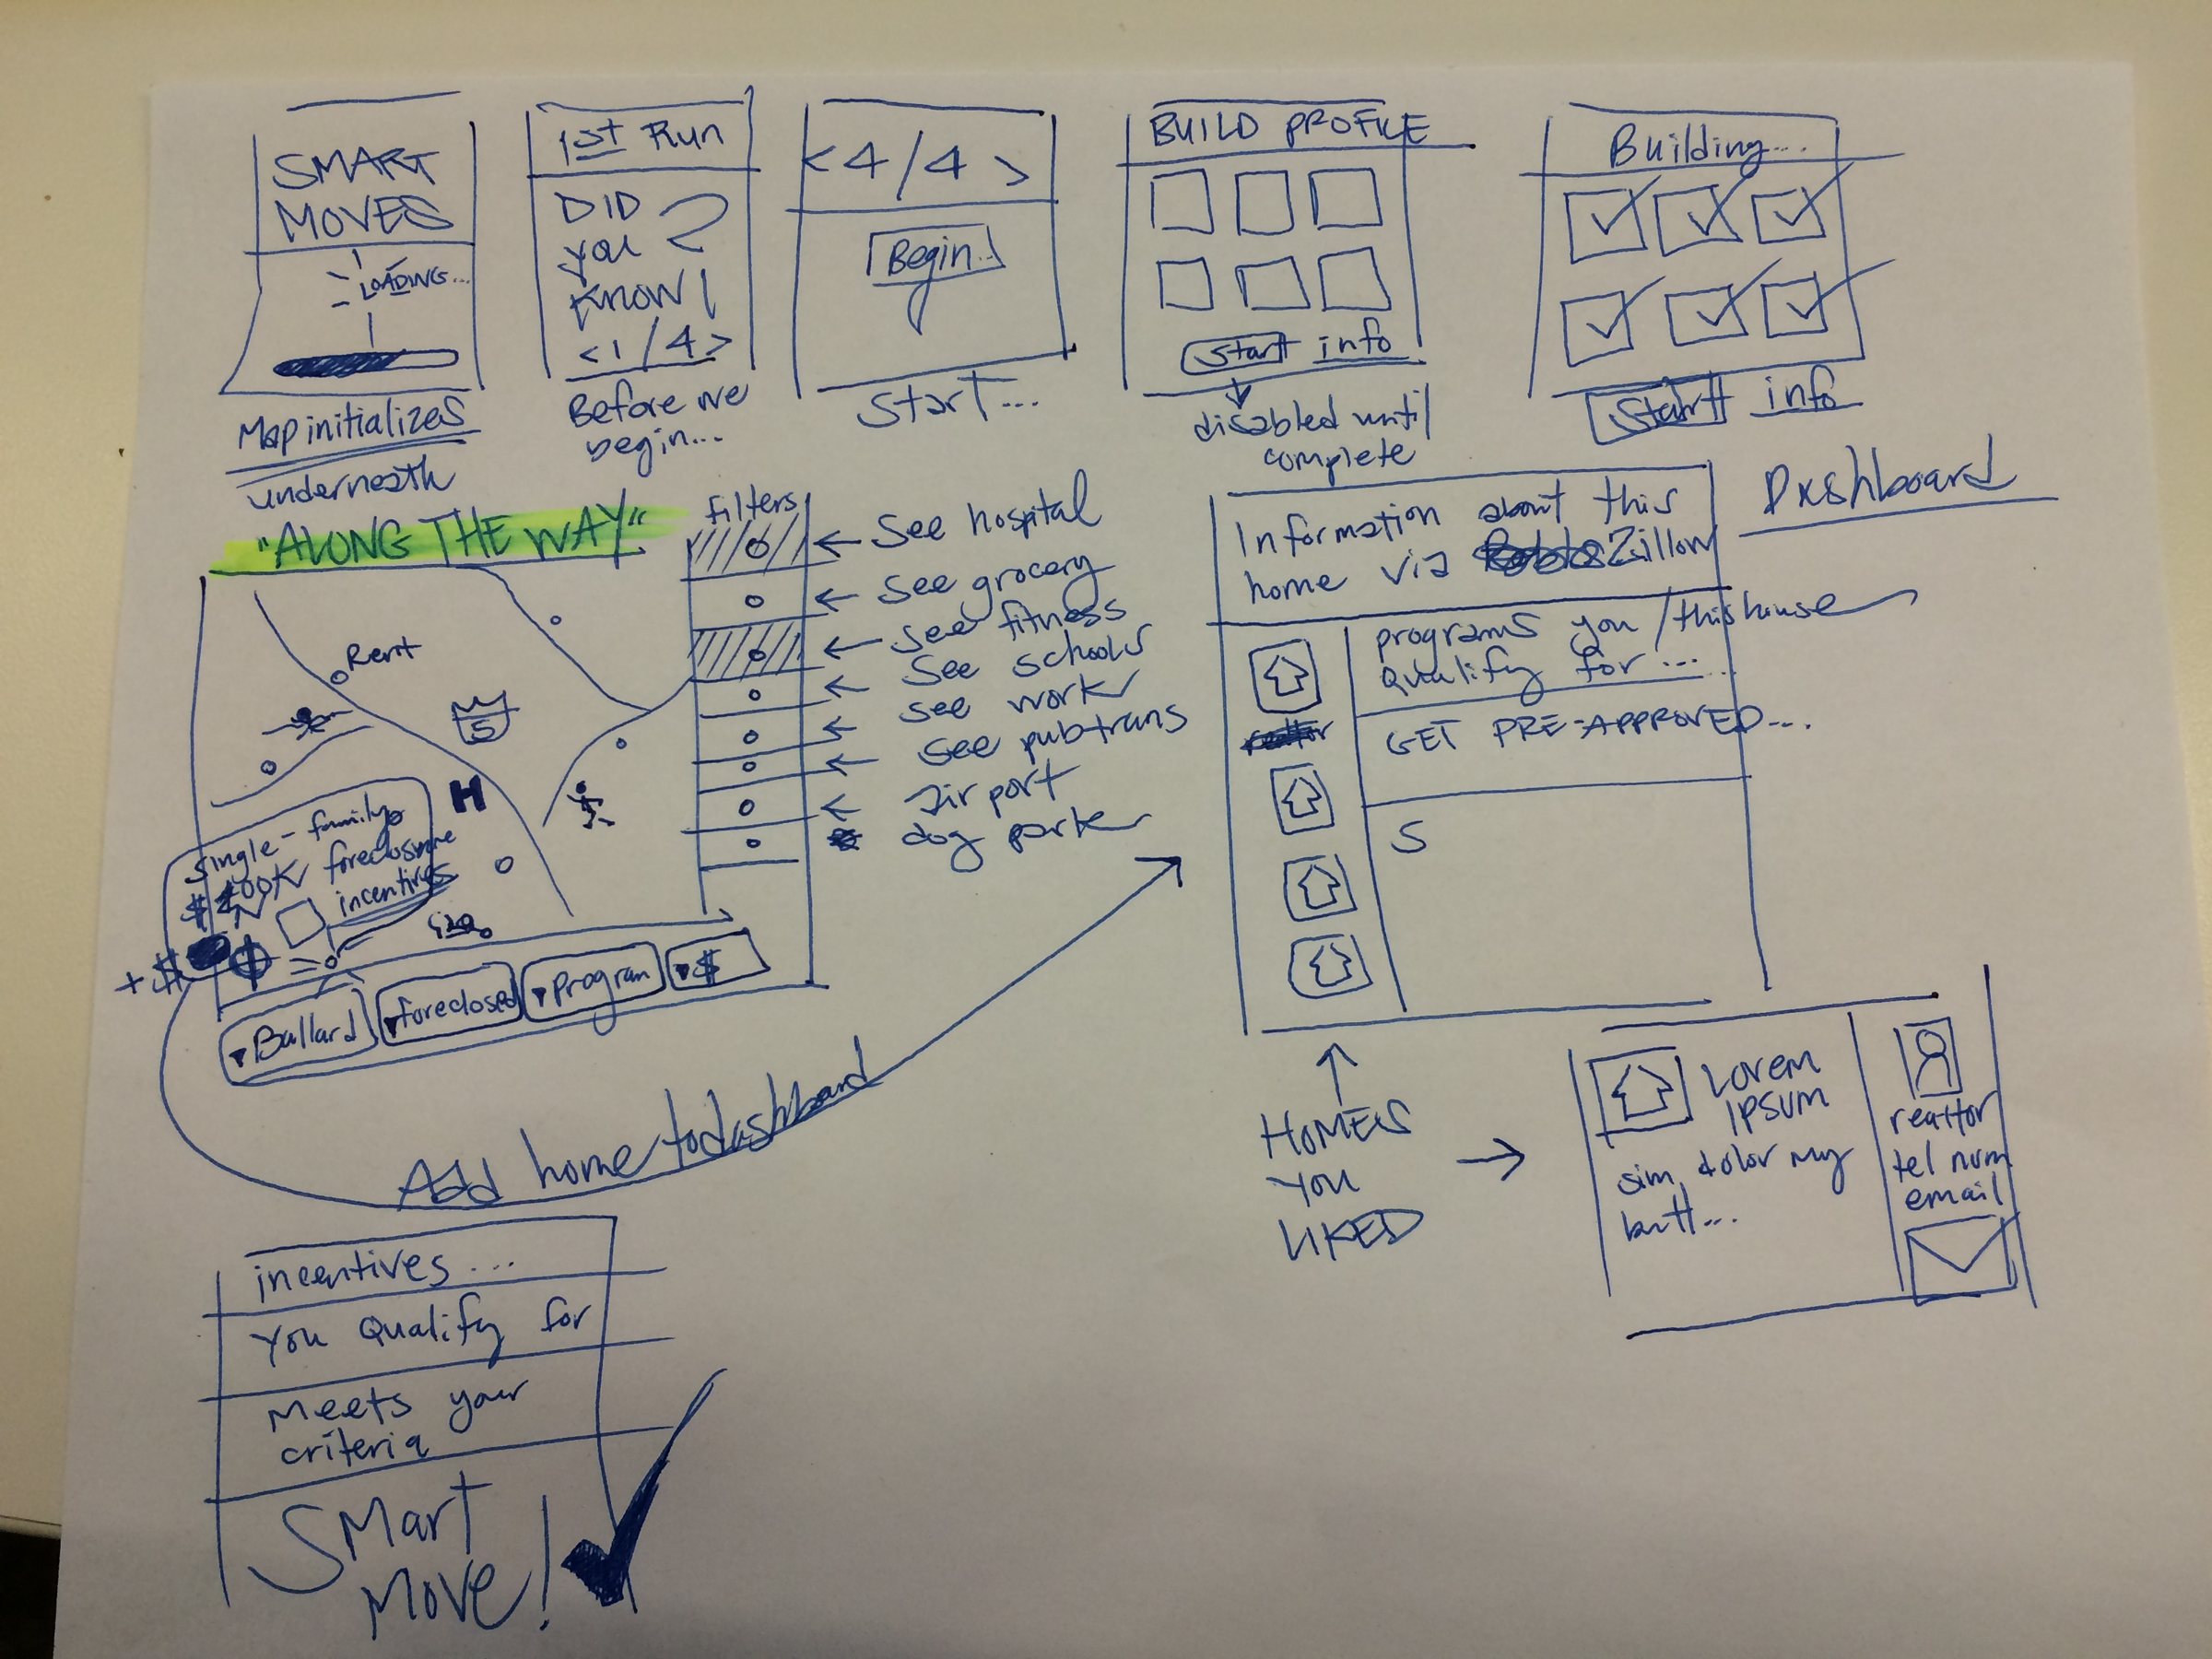 SMART
MOVES
LOADING...
Map initializes
underneath
1st Run
DID
you
KNOW?
<1/4>
Before we
begin...
<4/4>
Begin..
Start...
BUILD PROFILE
Start info
disabled until
complete
Building...
Start info
"ALONG THE WAY"
Rent
5
H
single-family
foreclosure
incentives
+$
Ballard
foreclosed
program
$
filters
See hospital
See grocery
See fitness
See schools
see work
see pubtrans
airport
dog park
Add home to dashboard
Dashboard
Information about this
home via Zillow
programs you/this house
Qualify for...
GET PRE-APPROVED...
S
HOMES
YOU
LIKED
LOREM
IPSUM
sim dolor my
butt...
realtor
tel num
email
incentives...
You Qualify for
Meets your
criteria
SMart
Move!